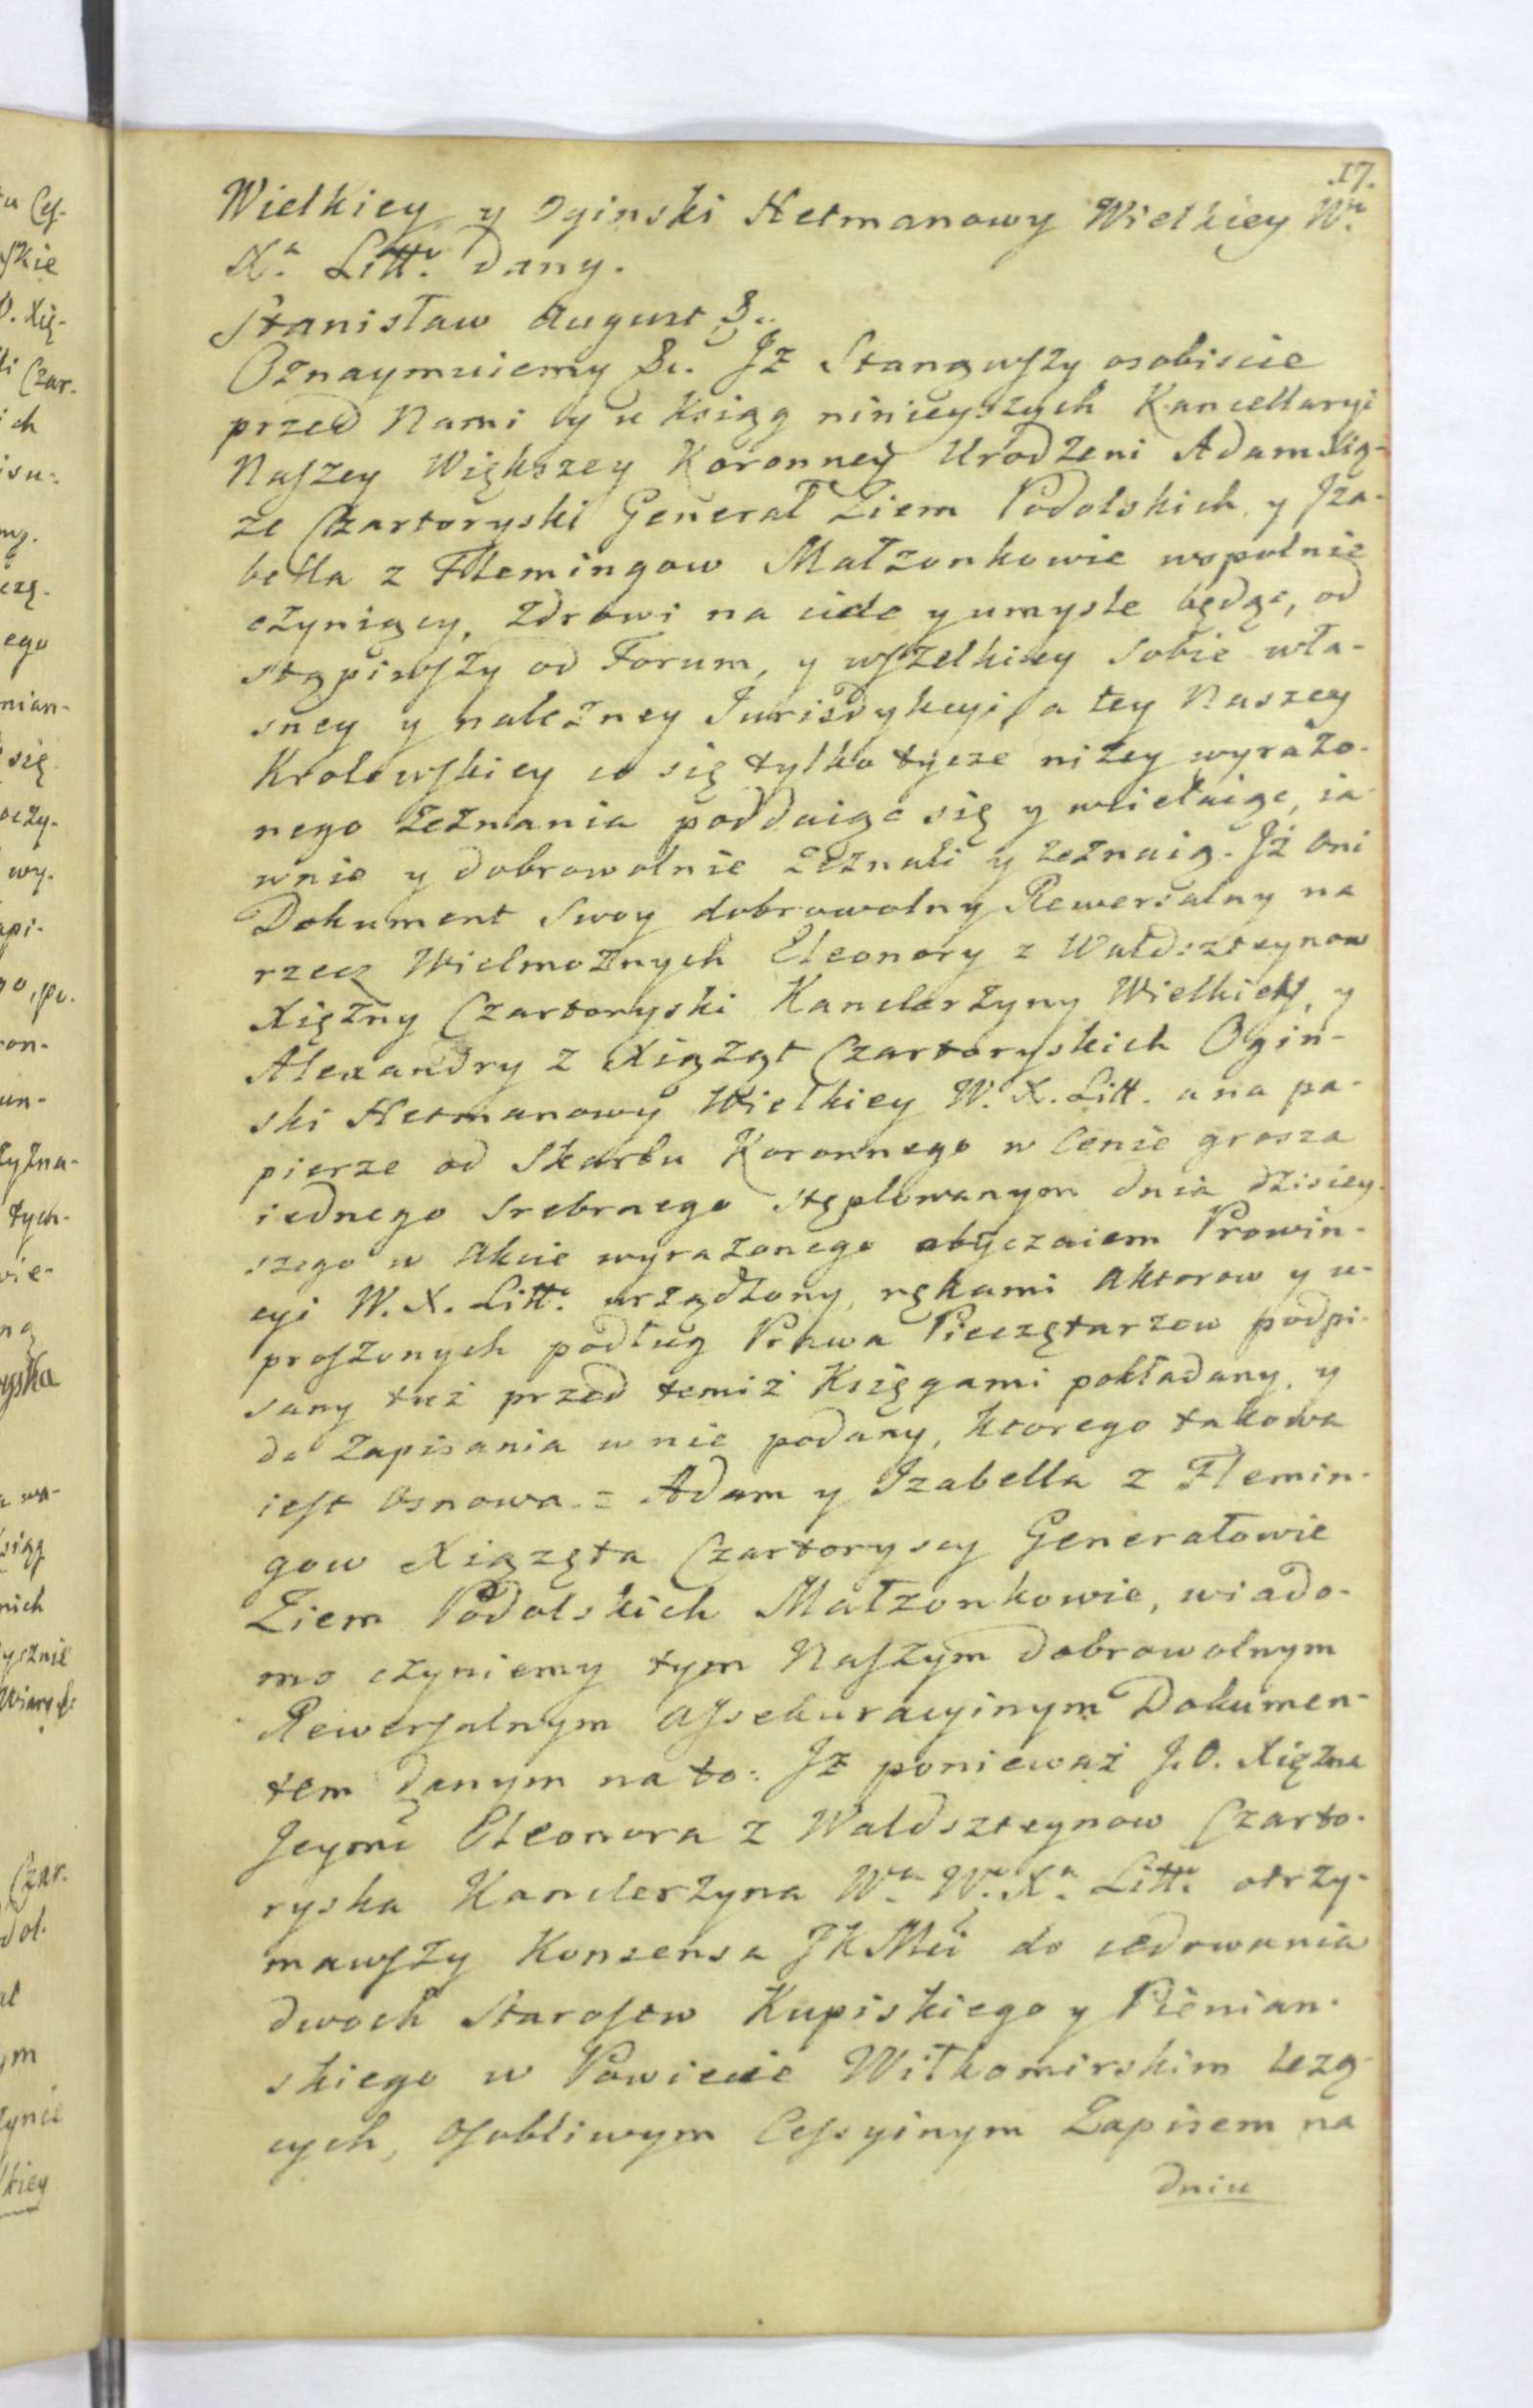 17.
Wielkiey y Oginski Hetmanowy Wielkiey Wo.
Xa. Litto. dany.
Stanisław August &c.
Oznaymuiemy &c. Jż Stanąwszy osobiscie
przed Nami y u Ksiąg ninieyszych Kancellaryi
Naszey Większey Koronney Urodzeni Adam Xią-
że Czartoryski Generał Ziem Podolskich y Jza-
bella z Flemingow Małżonkowie wspolnie
czyniący, zdrowi na ciele y umysle będąc, od
stąpiwszy od Forum, y wszelkiey sobie wła-
sney y należney Jurisdykcyi, a tey Naszey
Krolewskiey co się tylko tycze niżey wyrażo-
nego zeznania poddaiąc się y wcielaiąc, ia
wnie y dobrowolnie zeznali y zeznaią. Jż Oni
Dokument swoy dobrowolny Rewersalny na
rzecz Wielmożnych Eleonory z Waldszteynow
Xiężny Czartoryski Kanclerzyny Wielkiey, y
Alexandry z Xiążąt Czartoryskich Ogin-
ski Hetmanowy Wielkiey W. X. Litt. a na pa-
pierze od Skarbu Koronnego w Cenie grosza
iednego srebrnego stęplowanym dnia dzisiey-
szego w Akcie wyrażonego obyczaiem Prowin-
cyi W. X. Litto. urządzony, rękami Aktorow y u-
proszonych podług Prawa Pieczętarzow podpi-
sany tuż przed temiż Księgami pokładany, y
do Zapisania w nie podany, ktorego takowa
iest Osnowa. = Adam y Izabella z Flemin-
gow Xiążęta Czartoryscy Generałowie
Ziem Podolskich Małżonkowie, wiado-
mo czyniemy tym Naszym dobrowolnym
Rewersalnym Assekuracyinym Dokumen-
tem danym na to: Jż ponieważ J. O. Xiężna
Jeymć Eleonora z Waldszteynow Czarto-
ryska Kanclerzyna Wa. Wo. Xa. Litto. otrzy-
mawszy Konsensa JKMci do cedowania
dwoch Starostw Kupiskiego y Pienian-
skiego w Powiecie Wiłkomirskim leżą
cych, Osobliwym Cessyinym Zapisem na
dniu